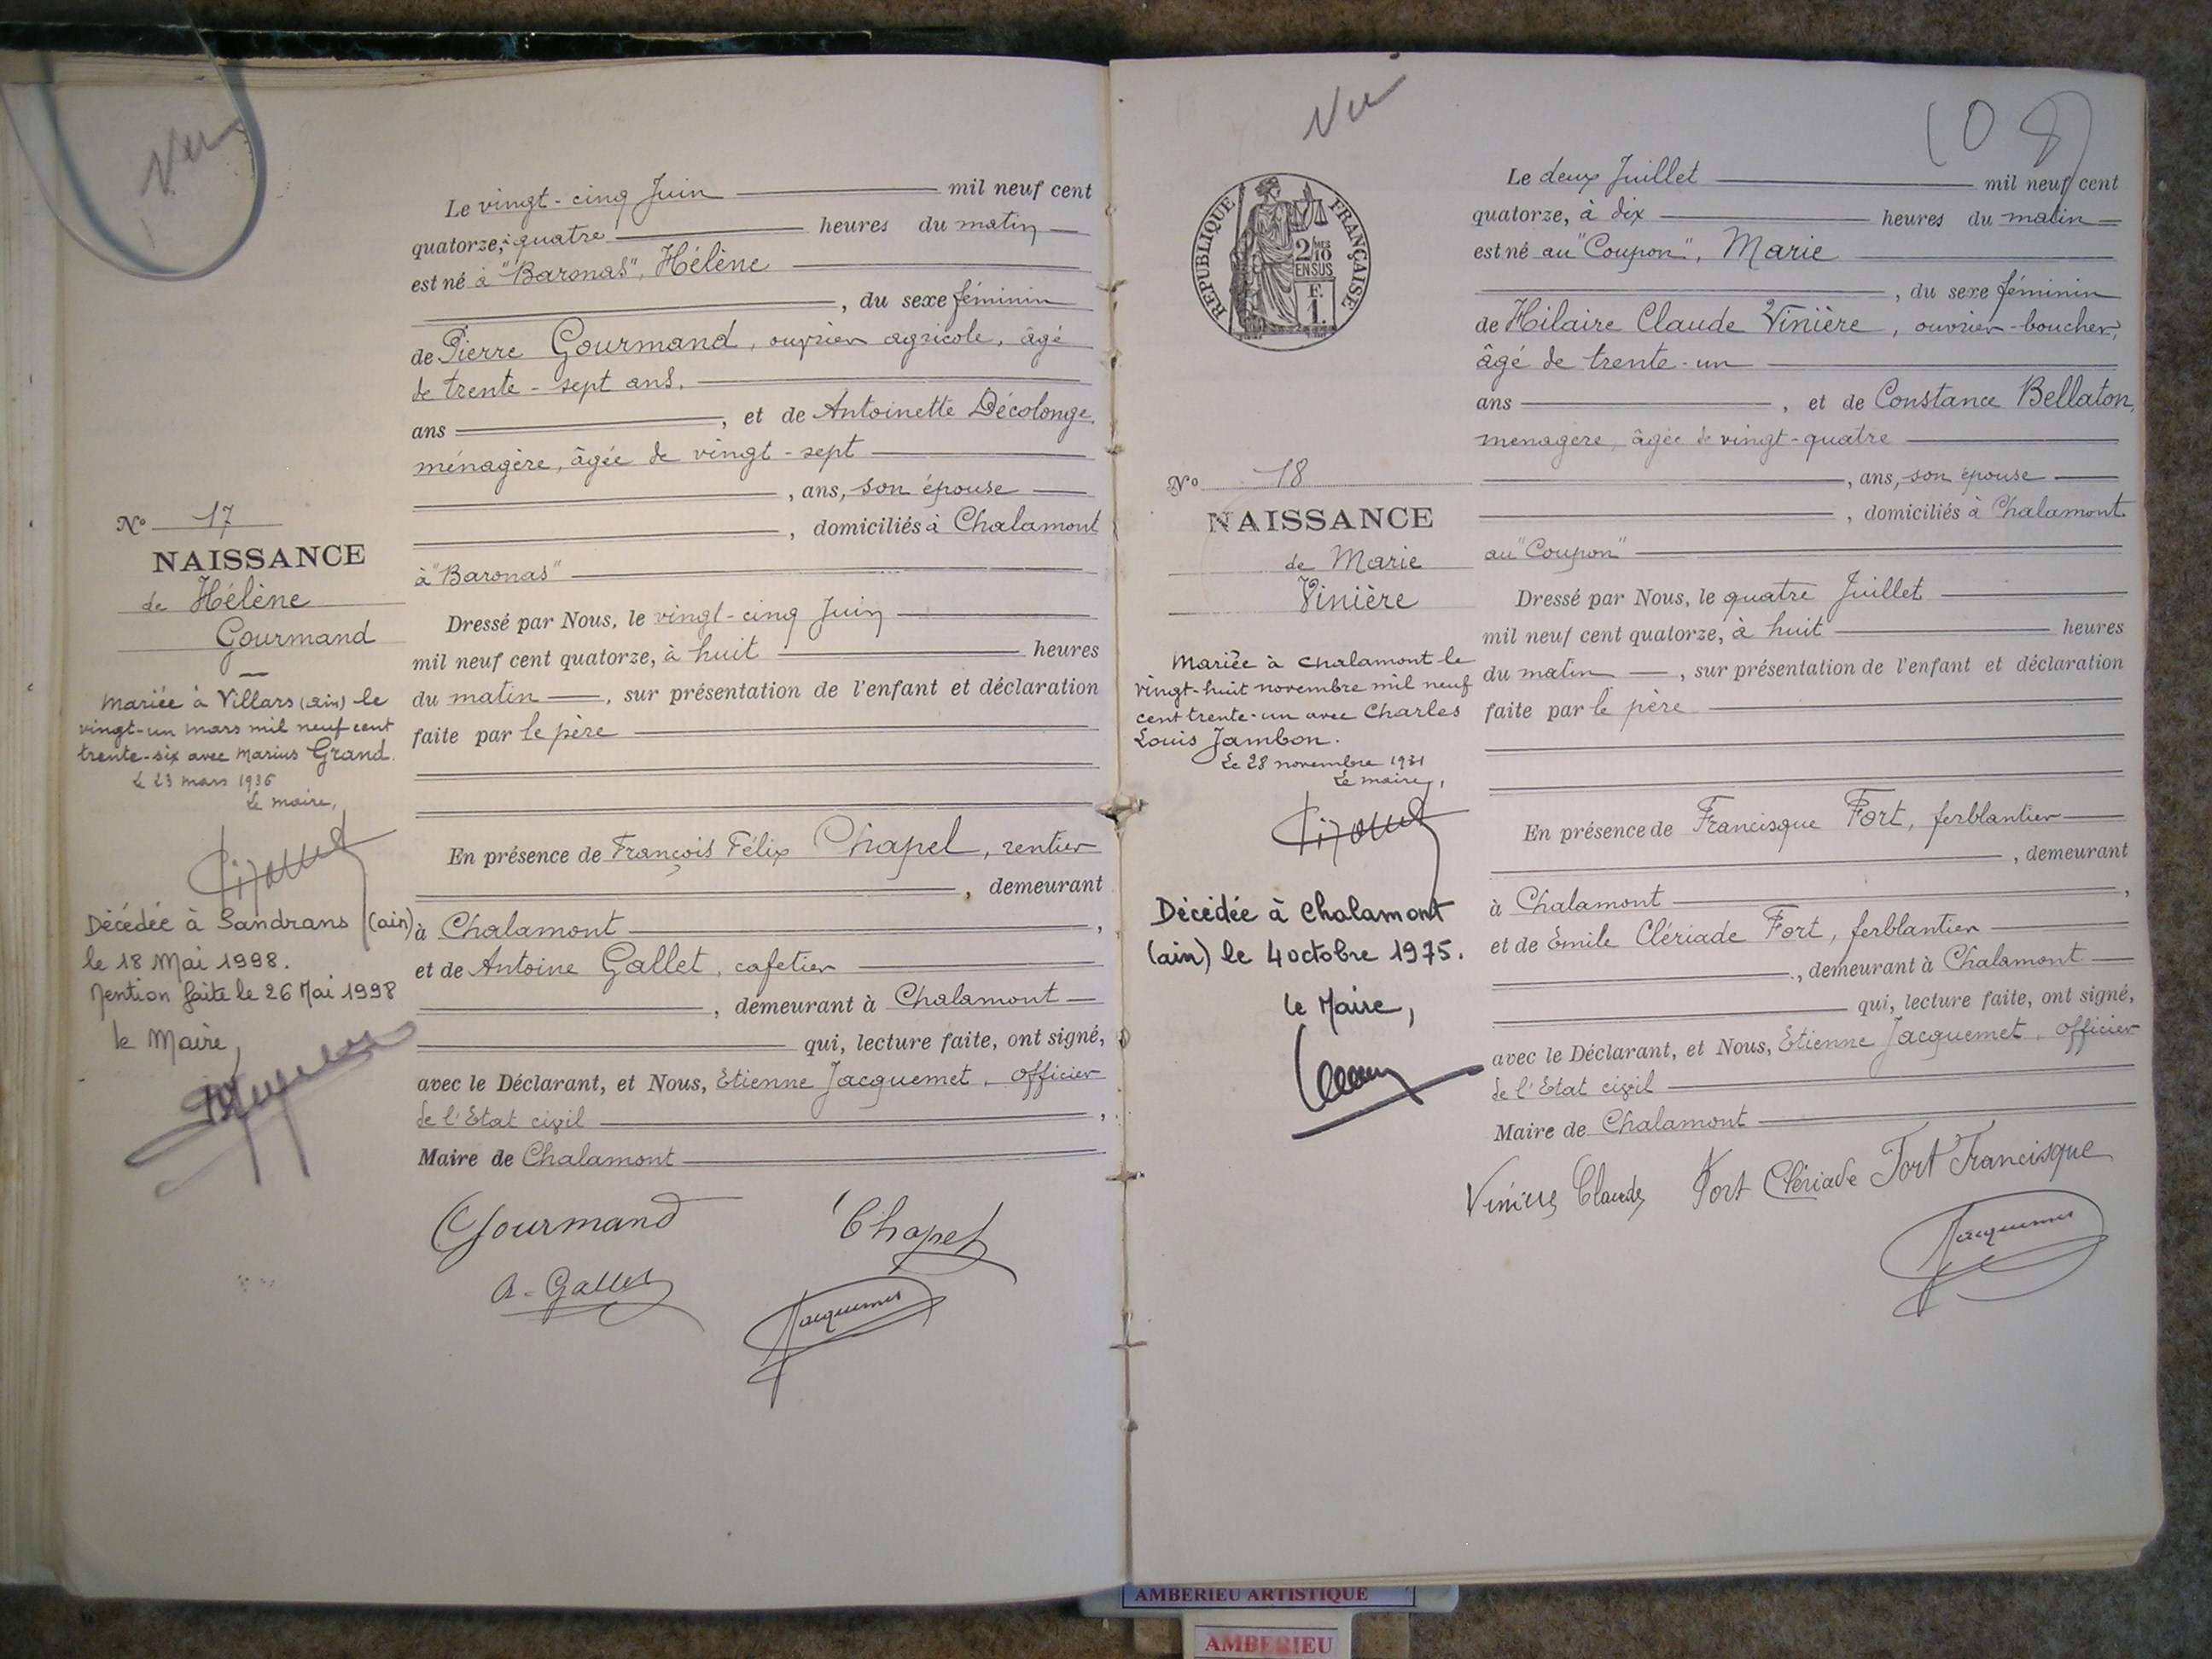 Vu
Le vingt-cinq Juin mil neuf cent
quatorze, à quatre heures du matin
est né à "Baronas", Hélène
, du sexe féminin
de Pierre Gourmand, ouvrier agricole, âgé
de trente-sept ans.
ans , et de Antoinette Décolonge,
ménagère, âgée de vingt-sept
, ans, son épouse
, domiciliés à Chalamont
à "Baronas"
Dressé par Nous, le vingt-cinq Juin
mil neuf cent quatorze, à huit heures
du matin , sur présentation de l'enfant et déclaration
faite par le père
En présence de François Félix Chapel, rentier
, demeurant
à Chalamont ,
et de Antoine Gallet, cafetier
, demeurant à Chalamont
qui, lecture faite, ont signé,
avec le Déclarant, et Nous, Etienne Jacquemet, officier
de l'Etat civil ,
Maire de Chalamont
Gourmand Chapel
A. Gallet Jacquemet
No 17
NAISSANCE
de Hélène
Gourmand
Mariée à Villars (ain) le
vingt-un mars mil neuf cent
trente-six avec Marius Grand.
Le 23 mars 1936
Le maire,
Décédée à Sandrans (ain)
le 18 Mai 1998.
Mention faite le 26 Mai 1998
le Maire,
Vu
108
RÉPUBLIQUE FRANÇAISE
2/10
EN SUS
F.
1.
Le deux Juillet mil neuf cent
quatorze, à dix heures du matin
est né au "Coupon", Marie
, du sexe féminin
de Hilaire Claude Vinière, ouvrier-boucher,
âgé de trente-un
ans , et de Constance Bellaton,
ménagère, âgée de vingt-quatre
, ans, son épouse
, domiciliés à Chalamont
au "Coupon"
Dressé par Nous, le quatre Juillet
mil neuf cent quatorze, à huit heures
du matin , sur présentation de l'enfant et déclaration
faite par le père
En présence de Francisque Fort, ferblantier
, demeurant
à Chalamont ,
et de Emile Clériade Fort, ferblantier
, demeurant à Chalamont
qui, lecture faite, ont signé,
avec le Déclarant, et Nous, Etienne Jacquemet, officier
de l'Etat civil
Maire de Chalamont
Vinière Claude Fort Clériade Fort Francisque
Jacquemet
No 18
NAISSANCE
de Marie
Vinière
Mariée à Chalamont le
vingt-huit novembre mil neuf
cent trente-un avec Charles
Louis Jambon.
Le 28 novembre 1931
Le maire,
Décédée à Chalamont
(ain) le 4 octobre 1975.
le Maire,
AMBERIEU ARTISTIQUE
AMBERIEU